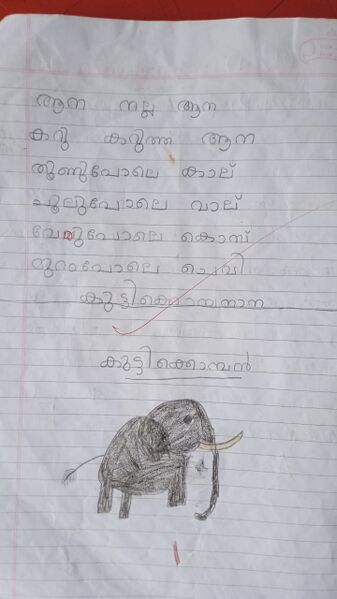 ആന നല്ല ആന
കറു കറുത്ത ആന
തൂണുപോലെ കാല്
ചൂലുപോലെ വാല്
കൊമ്പ്
മുറംപോലെ ചെവി
കുട്ടിക്കൊമ്പനാന
കുട്ടിക്കൊമ്പൻ